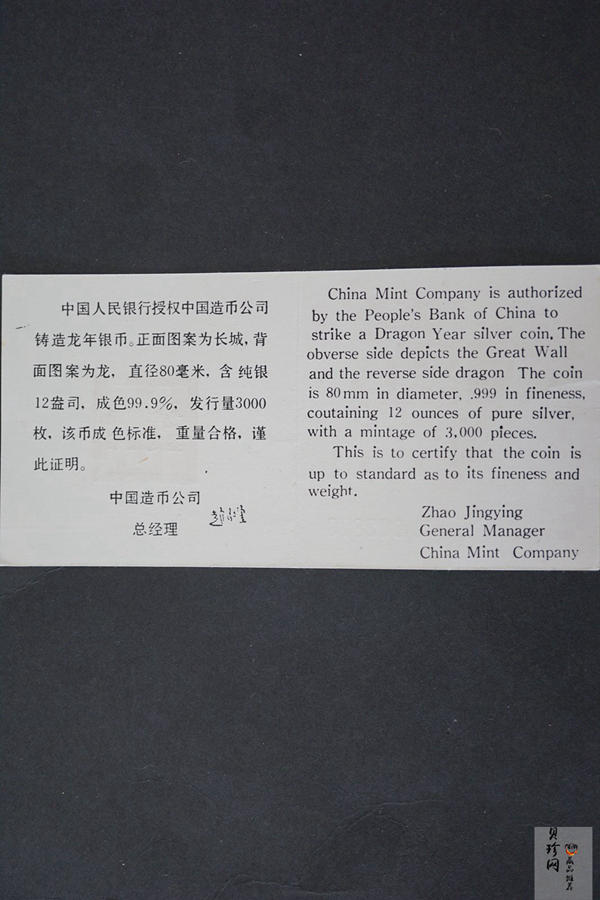 中国人民银行授权中国造币公司
铸造龙年银币。正面图案为长城，背
面图案为龙，直径80毫米，含纯银
12盎司，成色99.9%，发行量3000
枚，该币成色标准，重量合格，谨
此证明。
中国造币公司
总经理
China Mint Company is authorized
by the People's Bank of China to
strike a Dragon Year silver coin. The
obverse side depicts the Great Wall
and the reverse side dragon The coin
is 80mm in diameter, .999 in fineness,
coutaining 12 ounces of pure silver,
with a mintage of 3,000 pieces.
This is to certify that the coin is
up to standard as to its fineness and
weight.
Zhao Jingying
General Manager
China Mint Company
贝珍网
藏品推荐